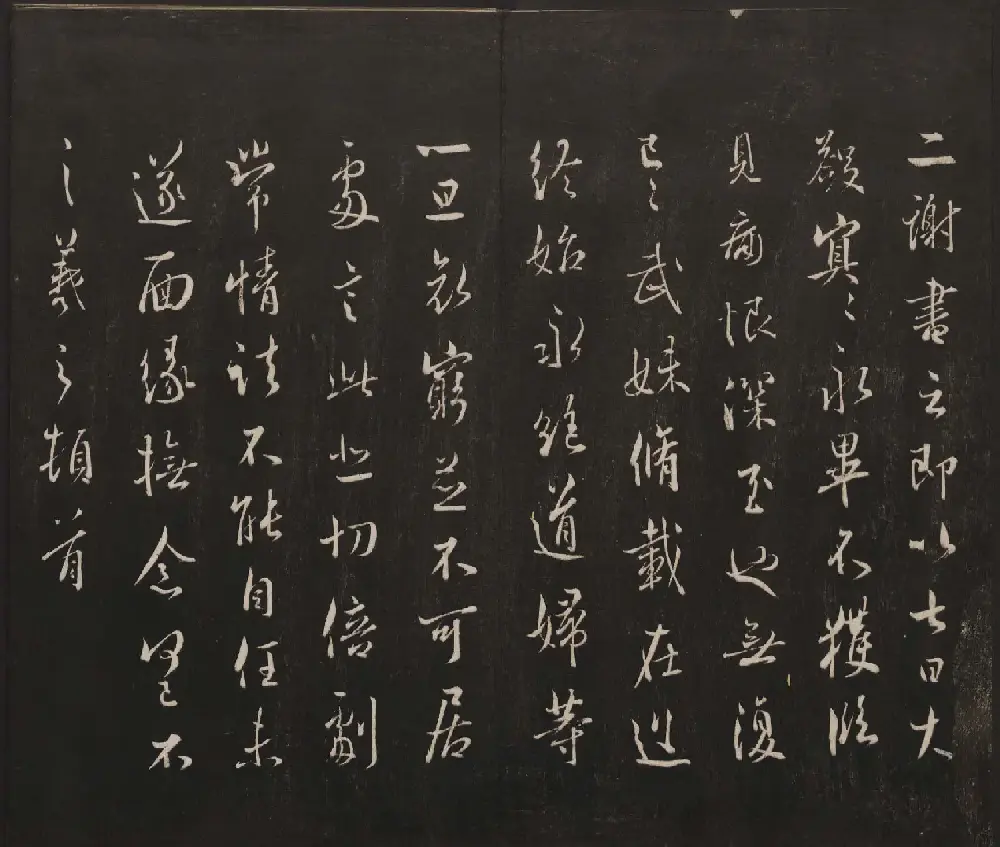 二謝書云即以七日大
殮冥冥永畢不獲臨
見痛恨深至也無復
已已武妹脩載在道
終始永絕道婦等
一旦哀窮並不可居
處言此悲切倍劇
常情諸不能自任未
遂面緣撫念何已不
具羲之頓首